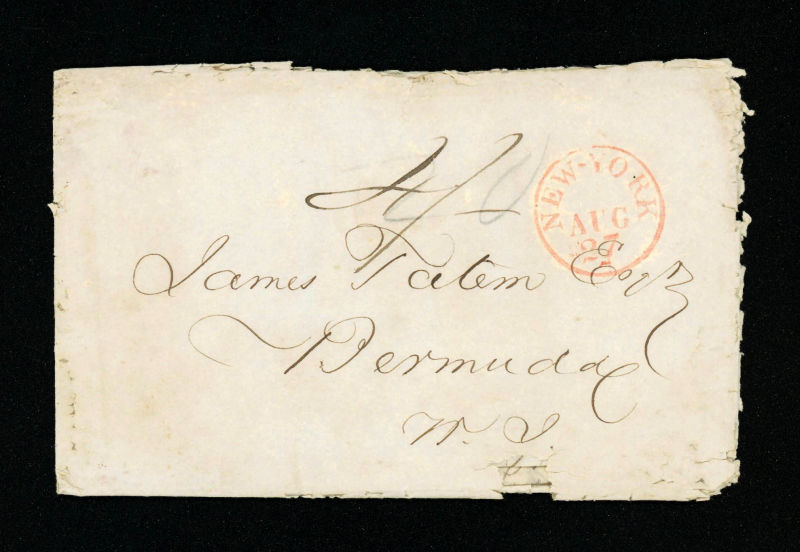 4/-
NEW-YORK
AUG
27
James Tatem Esqr
Bermuda
W. I.